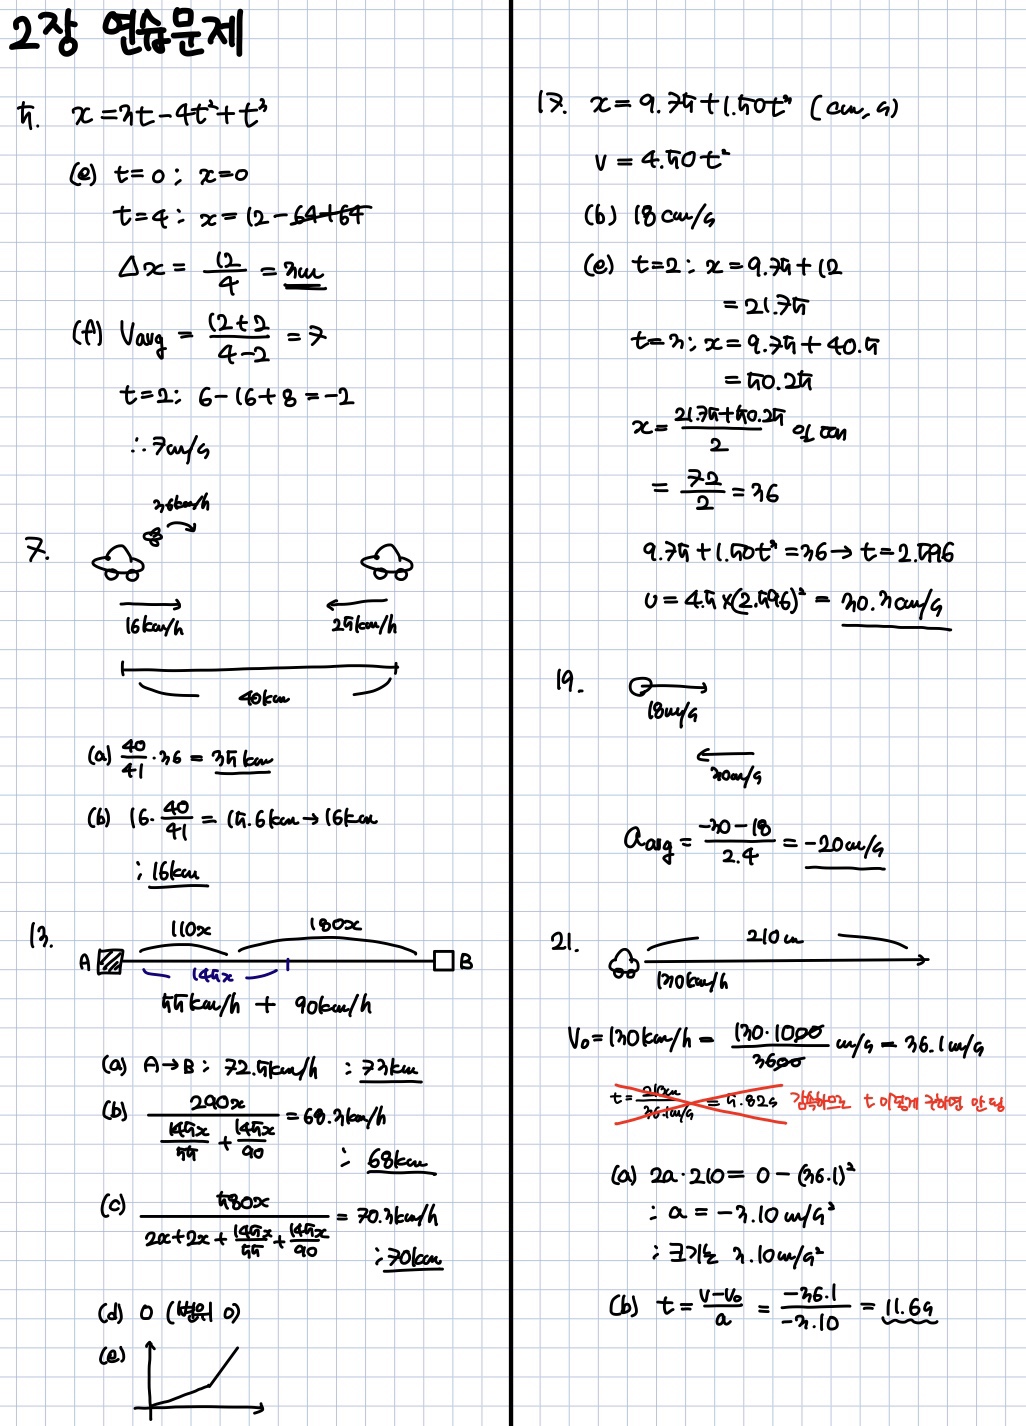 2장 연습문제
5. x = 3t - 4t² + t³
(e) t=0 ; x=0
t=4 ; x = 12 - 64+64
Δx = 12/4 = 3m
(f) Vavg = (12+2)/(4-2) = 7
t=2; 6-16+8 = -2
∴ 7m/s
7.
36km/h
16km/h
25km/h
40km
(a) 40/41 · 36 = 35km
(b) 16 · 40/41 = 15.6km → 16km
: 16km
13.
110x 180x
A B
145x
55km/h + 90km/h
(a) A→B ; 72.5km/h : 73km
(b) 290x / (145x/55 + 145x/90) = 68.3km/h
: 68km
(c) 580x / (2x+2x+145x/55+145x/90) = 70.3km/h
: 70km
(d) 0 (변위 0)
(e)
17. x = 9.75+1.50t³ (cm, s)
v = 4.50t²
(b) 18cm/s
(e) t=2 ; x = 9.75+12
= 21.75
t=3 ; x = 9.75+40.5
= 50.25
x = (21.75+50.25)/2 일 때
= 72/2 = 36
9.75+1.50t³ = 36 → t = 2.596
v = 4.5×(2.596)² = 30.3cm/s
19.
18m/s
30m/s
aavg = (-30-18)/2.4 = -20m/s
21.
210m
130km/h
V₀ = 130km/h = 130·1000/3600 m/s = 36.1m/s
t = 210m/36.1m/s = 5.82s 감속하므로 t 이렇게 구하면 안 됨
(a) 2a·210 = 0-(36.1)²
: a = -3.10m/s²
: 크기는 3.10m/s²
(b) t = (v-v₀)/a = -36.1/-3.10 = 11.6s